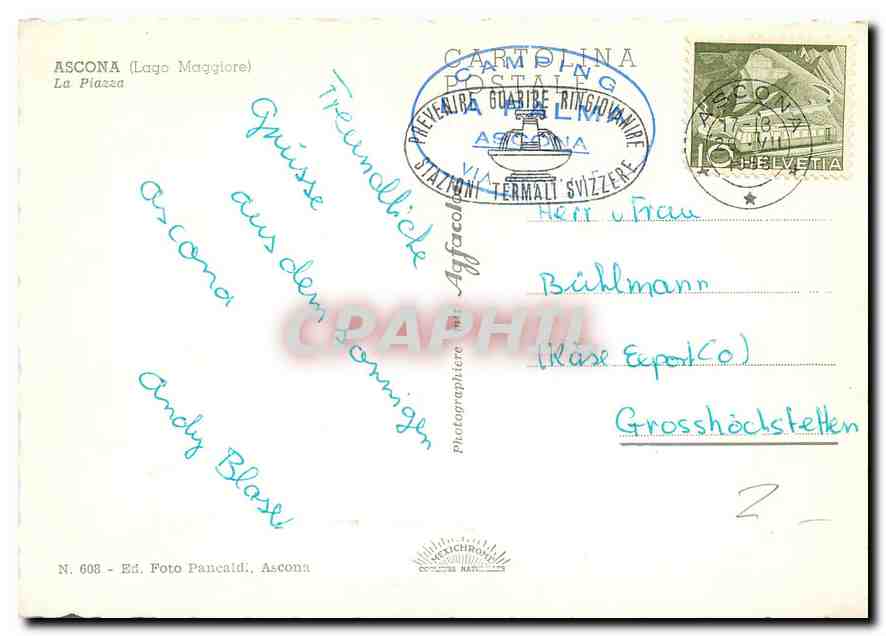 ASCONA (Lago Maggiore)
La Piazza
CARTOLINA
POSTALE
CAMPING
LA PALMA
ASCONA
VIA
PREVENIRE GUARIRE RINGIOVANIRE
STAZIONI TERMALI SVIZZERE
ASCONA
17-18
VII
10 HELVETIA
Freundliche
Grüsse
aus dem sonnigen
ascona
Andy Blaser
Herr u Frau
Bühlmann
(Käse Export Co)
Grosshöchstetten
Photographiere mit Agfacolor
CPAPHIL
MEXICHROME
COULEURS NATURELLES
N. 608 - Ed. Foto Pancaldi, Ascona
2 -